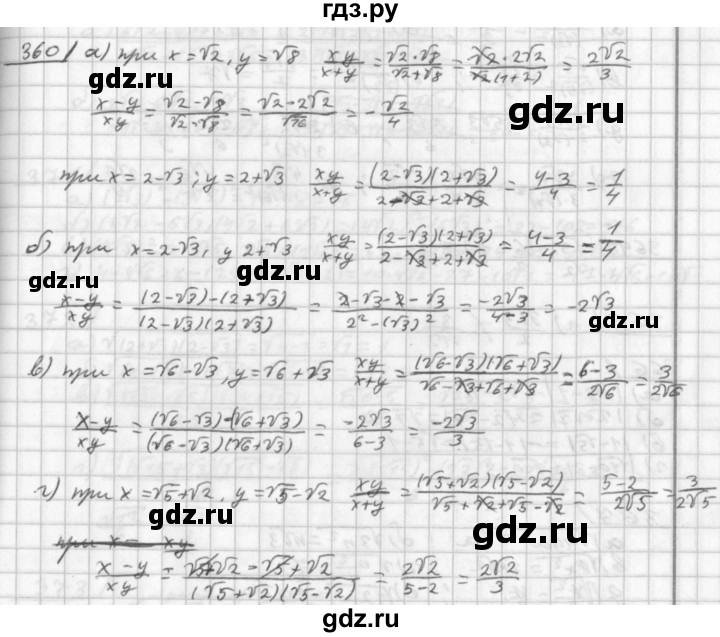 гдз.ру
360/ а) при x = √2, y = √8 xy/x+y = √2·√8/√2+√8 = √2·2√2/√2(1+2) = 2√2/3
x−y/xy = √2−√8/√2−√8 = √2−2√2/√16 = −√2/4
gdz.ru
при x = 2−√3; y = 2+√3 xy/x+y = (2−√3)(2+√3)/2−√3+2+√3 = 4−3/4 = 1/4
б) при x = 2−√3, y 2+√3 xy/x+y = (2−√3)(2+√3)/2−√3+2+√3 = 4−3/4 = 1/4
gdz.ru
x−y/xy = (2−√3)−(2+√3)/(2−√3)(2+√3) = 2−√3−2−√3/2²−(√3)² = −2√3/4−3 = −2√3
в) при x = √6−√3, y = √6+√3 xy/x+y = (√6−√3)(√6+√3)/√6−√3+√6+√3 = 6−3/2√6 = 3/2√6
x−y/xy = (√6−√3)−(√6+√3)/(√6−√3)(√6+√3) = −2√3/6−3 = −2√3/3
г) при x = √5+√2, y = √5−√2 xy/x+y = (√5+√2)(√5−√2)/√5+√2+√5−√2 = 5−2/2√5 = 3/2√5
gdz.ru
при x = xy
x−y/xy = √5+√2−√5+√2/(√5+√2)(√5−√2) = 2√2/5−2 = 2√2/3
gdz.ru
gdz.ru